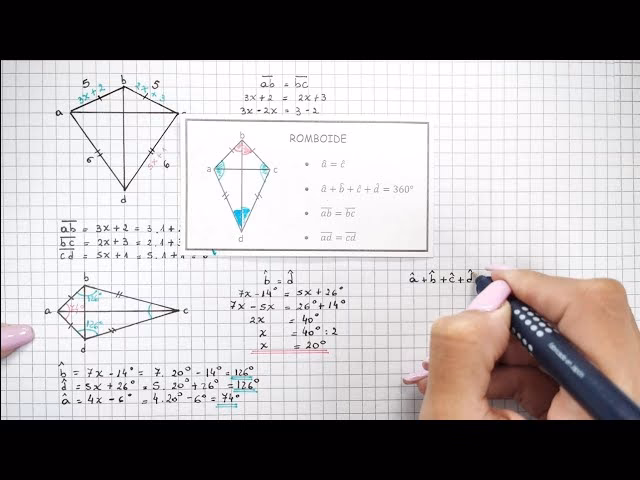 5 b 5
3x+2 2x+3
a
6 5x+1 6
d
ab = bc
3x+2 = 2x+3
3x-2x = 3-2
ROMBOIDE
b
a c
d
• â = ĉ
• â + b̂ + ĉ + d̂ = 360°
• ab = bc
• ad = cd
ab = 3x+2 = 3.1+
bc = 2x+3 = 2.1+3
cd = 5x+1 = 5.1+
b
126°
a 74° c
126°
d
b̂ = d̂
7x-14° = 5x+26°
7x-5x = 26°+14°
2x = 40°
x = 40° : 2
x = 20°
b̂ = 7x-14° = 7.20°-14° = 126°
d̂ = 5x+26° = 5.20°+26° = 126°
â = 4x-6° = 4.20°-6° = 74°
â+b̂+ĉ+d̂